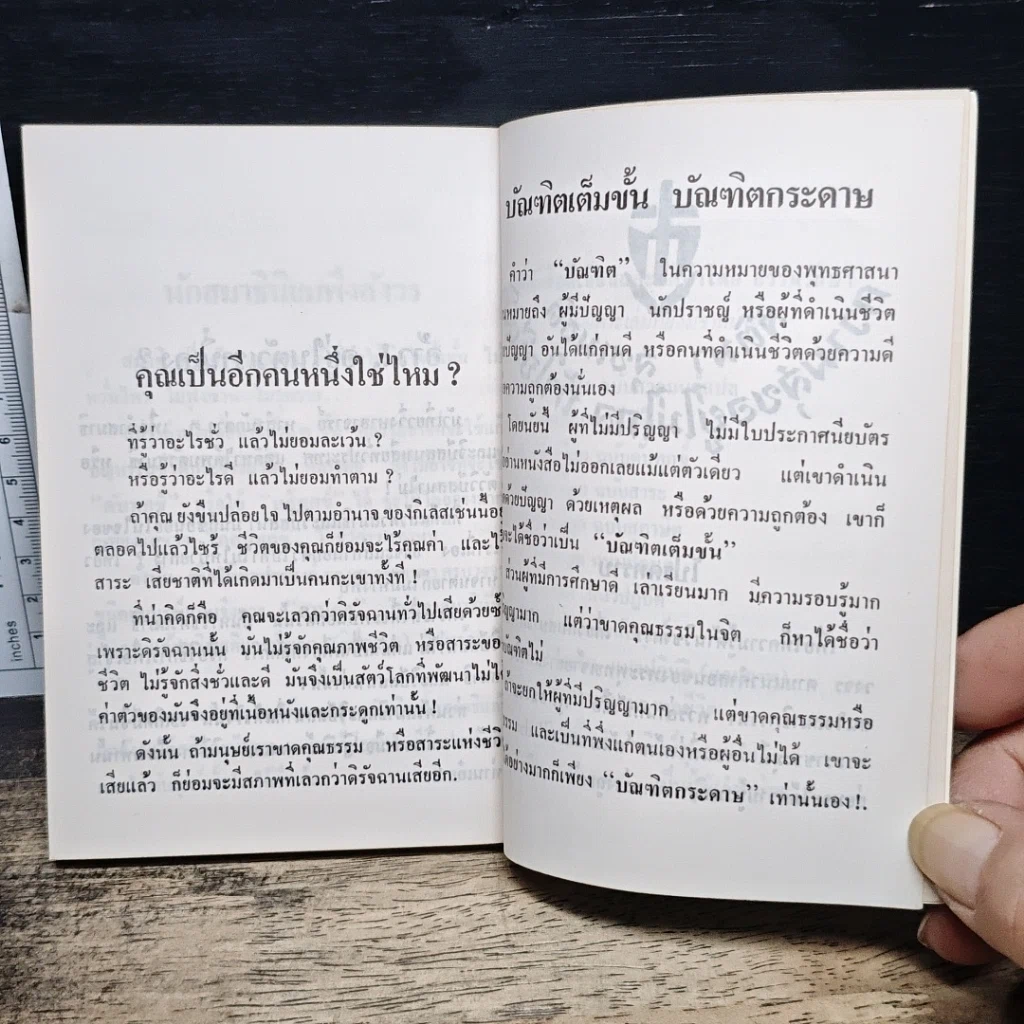 คุณเป็นอีกคนหนึ่งใช่ไหม ?
ที่รู้ว่าอะไรชั่ว แล้วไม่ยอมละเว้น ?
หรือรู้ว่าอะไรดี แล้วไม่ยอมทำตาม ?
ถ้าคุณ ยังขืนปล่อยใจ ไปตามอำนาจ ของกิเลสเช่นนี้อ
ตลอดไปแล้วไซร้ ชีวิตของคุณก็ย่อมจะไร้คุณค่า และไร้
สาระ เสียชาติที่ได้เกิดมาเป็นคนกะเขาทั้งที !
ที่น่าคิดก็คือ คุณจะเลวกว่าดิรัจฉานทั่วไปเสียด้วยซ้
เพราะดิรัจฉานนั้น มันไม่รู้จักคุณภาพชีวิต หรือสาระขอ
ชีวิต ไม่รู้จักสิ่งชั่วและดี มันจึงเป็นสัตว์โลกที่พัฒนาไม่ได้
ค่าตัวของมันจึงอยู่ที่เนื้อหนังและกระดูกเท่านั้น !
ดังนั้น ถ้ามนุษย์เราขาดคุณธรรม หรือสาระแห่งชีวิ
เสียแล้ว ก็ย่อมจะมีสภาพที่เลวกว่าดิรัจฉานเสียอีก.
บัณฑิตเต็มขั้น บัณฑิตกระดาษ
คำว่า “บัณฑิต” ในความหมายของพุทธศาสนา
นหมายถึง ผู้มีปัญญา นักปราชญ์ หรือผู้ที่ดำเนินชีวิต
ปัญญา อันได้แก่คนดี หรือคนที่ดำเนินชีวิตด้วยความดี
ความถูกต้องนั่นเอง
โดยนัยนี้ ผู้ที่ไม่มีปริญญา ไม่มีใบประกาศนียบัตร
อ่านหนังสือไม่ออกเลยแม้แต่ตัวเดียว แต่เขาดำเนิน
ด้วยปัญญา ด้วยเหตุผล หรือด้วยความถูกต้อง เขาก็
จะได้ชื่อว่าเป็น “บัณฑิตเต็มขั้น”
ส่วนผู้ที่มีการศึกษาดี เล่าเรียนมาก มีความรอบรู้มาก
ญญามาก แต่ว่าขาดคุณธรรมในจิต ก็หาได้ชื่อว่า
บัณฑิตไม่
ถ้าจะยกให้ผู้ที่มีปริญญามาก แต่ขาดคุณธรรมหรือ
ธรรม และเป็นที่พึ่งแก่ตนเองหรือผู้อื่นไม่ได้ เขาจะ
ได้อย่างมากก็เพียง “บัณฑิตกระดาษ” เท่านั้นเอง !.
inches
1
2
3
4
5
6